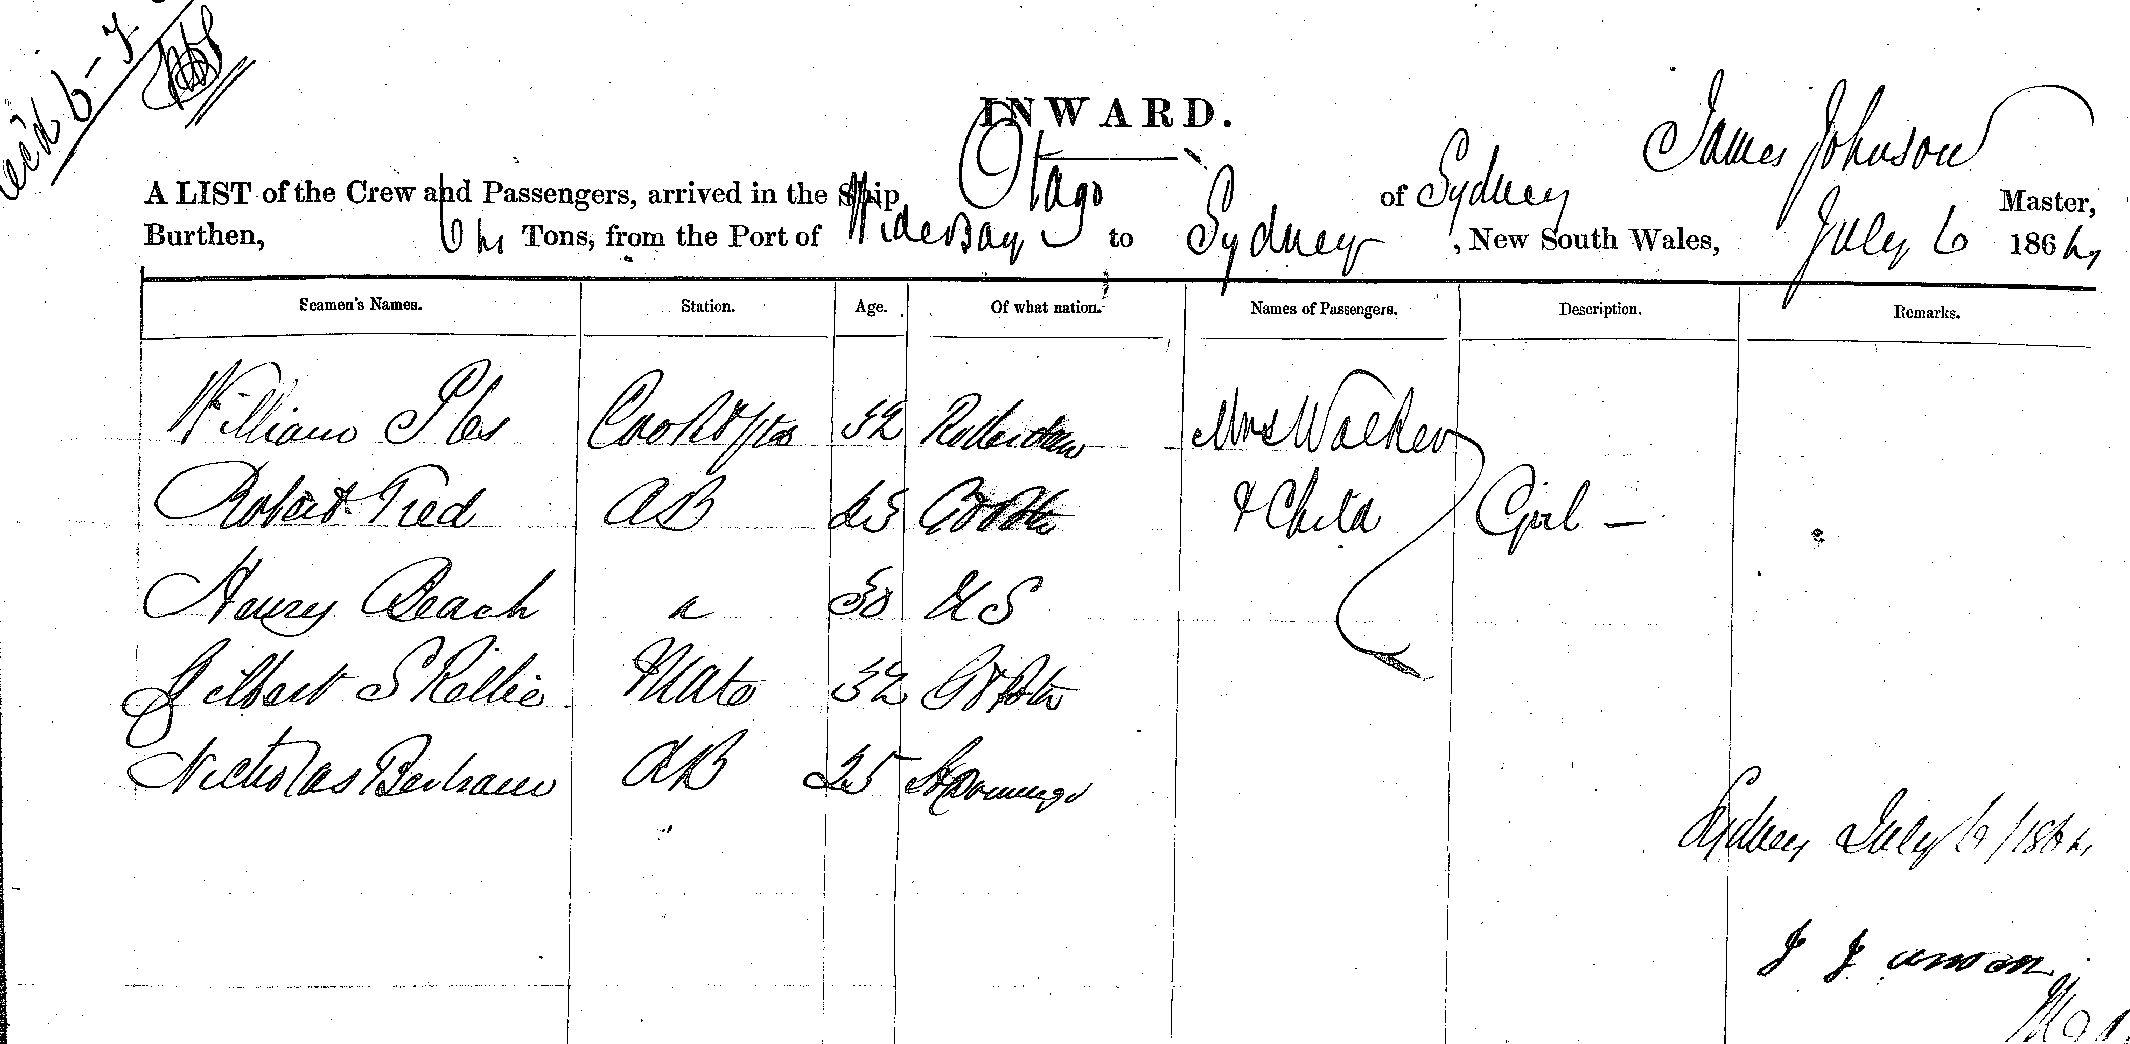 INWARD.
James Johnson
A LIST of the Crew and Passengers, arrived in the Ship Otago of Sydney Master,
Burthen, Tons, from the Port of Wide Bay to Sydney, New South Wales, July 6 1864
Seamen's Names. Station. Age. Of what nation. Names of Passengers. Description. Remarks.
William 32 Mrs Walker
Robert AB 25 & Child Girl —
Henry Beach 30 US
Gilbert Skillie Mate 32
Nicholas Bertram AB 25 St Domingo
Sydney July 6/1864